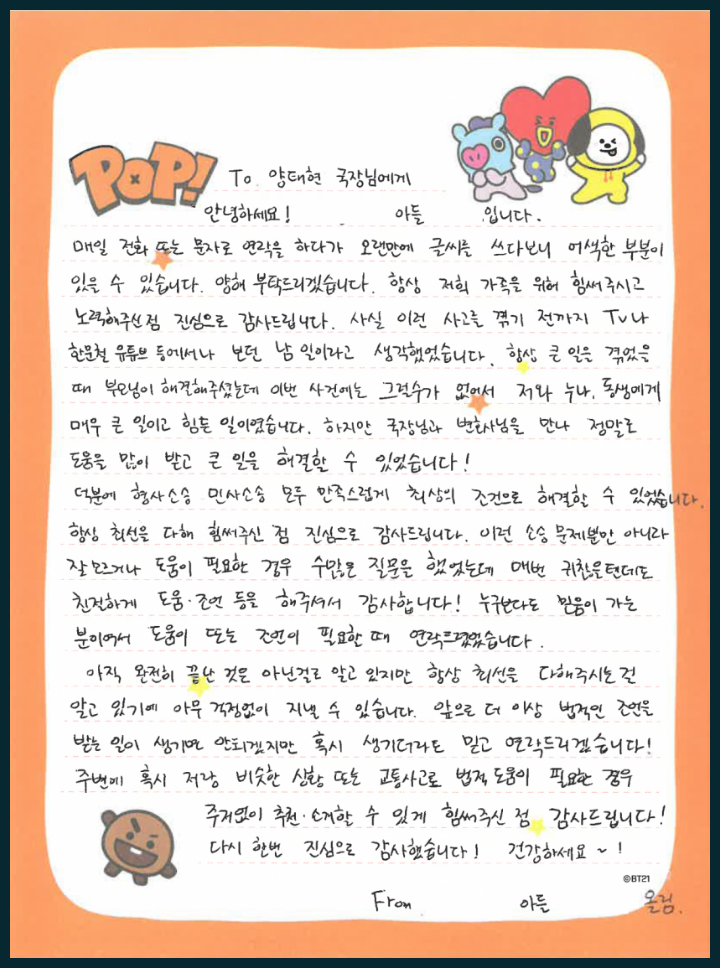 POP!
To. 양태현 국장님에게
안녕하세요! 아들 입니다.
매일 전화 또는 문자로 연락을 하다가 오랜만에 글씨를 쓰다보니 어색한 부분이
있을 수 있습니다. 양해 부탁드리겠습니다. 항상 저희 가족을 위해 힘써주시고
노력해주신점 진심으로 감사드립니다. 사실 이런 사고를 겪기 전까지 TV나
한문철 유튜브 등에서나 보던 남 일이라고 생각했었습니다. 항상 큰 일을 겪었을
때 부모님이 해결해주셨는데 이번 사건에는 그럴수가 없어서 저와 누나, 동생에게
매우 큰 일이고 힘든 일이였습니다. 하지만 국장님과 변호사님을 만나 정말로
도움을 많이 받고 큰 일을 해결할 수 있었습니다!
덕분에 형사소송 민사소송 모두 만족스럽게 최상의 조건으로 해결할 수 있었습니다.
항상 최선을 다해 힘써주신 점 진심으로 감사드립니다. 이런 소송 문제뿐만 아니라
잘 모르거나 도움이 필요한 경우 수많은 질문을 했었는데 매번 귀찮을텐데도
친절하게 도움·조언 등을 해주셔서 감사합니다! 누구보다도 믿음이 가는
분이여서 도움이 또는 조언이 필요한 때 연락드렸었습니다.
아직 완전히 끝난 것은 아닌걸로 알고 있지만 항상 최선을 다해주시는걸
알고 있기에 아무 걱정없이 지낼 수 있습니다. 앞으로 더 이상 법적인 조언을
받는 일이 생기면 안되겠지만 혹시 생기더라도 믿고 연락드리겠습니다!
주변에 혹시 저랑 비슷한 상황 또는 교통사고로 법적 도움이 필요한 경우
주저없이 추천·소개할 수 있게 힘써주신 점 감사드립니다!
다시 한번 진심으로 감사했습니다! 건강하세요~!
©BT21
From 아들 올림.